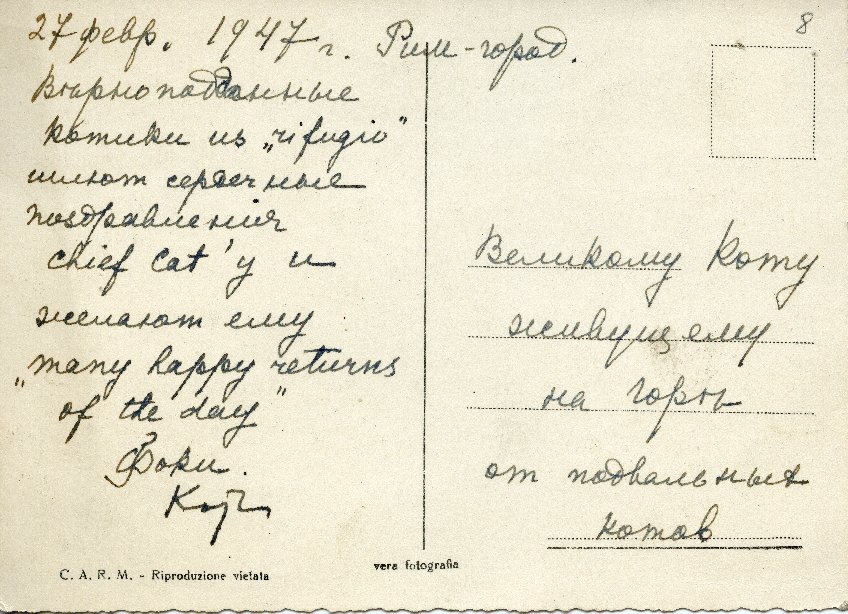 27 февр. 1947 г. Рим-город.
8
Вѣрноподданные
котики из „rifugio"
шлют сердечные
поздравления
chief Cat'у и
желают ему
„many happy returns
of the day"
Фоки.
Великому Коту
живущему
на горѣ
от подвальных
котов
C. A. R. M. - Riproduzione vietata
vera fotografia